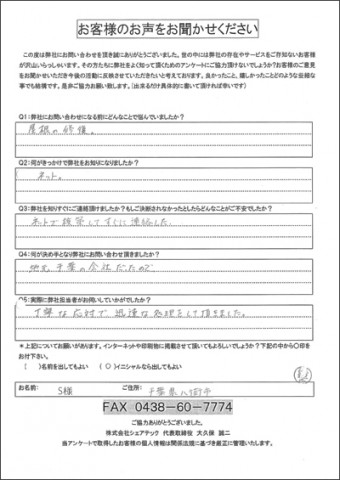 お客様のお声をお聞かせください
この度は弊社にお問い合わせを頂き誠にありがとうございました。世の中には弊社の存在やサービスをご存知ないお客様
が沢山いらっしゃいます。その方たちに弊社をよく知って頂くためのアンケートにご協力頂けないでしょうか?お客様のご意見
をお聞かせいただき今後の活動に反映させていただきたいと考えております。良かったこと、嬉しかったことどのような些細な
事でも結構です。是非ご協力お願い致します。(出来るだけ具体的に書いて頂ければ幸いです)
Q1:弊社にお問い合わせになる前にどんなことで悩んでいましたか?
屋根の修理。
Q2:何がきっかけで弊社をお知りになりましたか?
ネット。
Q3:弊社を知りすぐにご連絡頂けましたか?もしご決断されなかったとしたらどんなことがご不安でしたか?
ネットで検索してすぐに連絡した.
Q4:何が決め手となり弊社にお問い合わせ頂きましたか?
地元 千葉の会社だったので
Q5:実際に弊社担当者がお伺いしていかがでしたか?
丁寧な応対で、迅速な処理をして頂きました。
*上記についてお願いがあります。インターネットや印刷物に掲載させて頂いてもよろしいでしょうか?下記の中から〇印を
お付下さい。
( )名前を出してもよい (〇)イニシャルなら出してもよい
お名前: S様 ご住所: 千葉県八街市
FAX 0438-60-7774
ご協力ありがとうございました。
株式会社シェアテック 代表取締役 大久保 誠二
当アンケートで取得したお客様の個人情報は関係法規に基づき厳正に管理いたします。